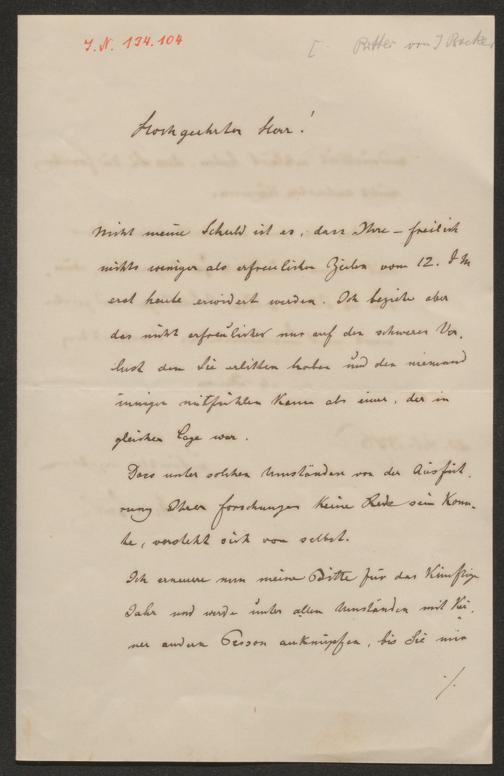 J. N. 134.104
[ Ritter von J
Hochgeehrter Herr!
Nicht meine Schuld ist es, dass Ihre – freilich
nichts weniger als erfreulichen Zeilen vom 12. d M
erst heute erwidert werden. Ich beziehe aber
das nicht erfreulicher nur auf den schweren Ver-
lust den Sie erlitten haben und den niemand
inniger mitfühlen kann als einer, der in
gleicher Lage war.
Dass unter solchen Umständen von der Ausfüh-
rung Ihrer Forschungen keine Rede sein konn-
te, versteht sich von selbst.
Ich erneuere nun meine Bitte für das künftige
Jahr und werde unter allen Umständen mit kei-
ner andern Person anknüpfen, bis Sie mir
./.